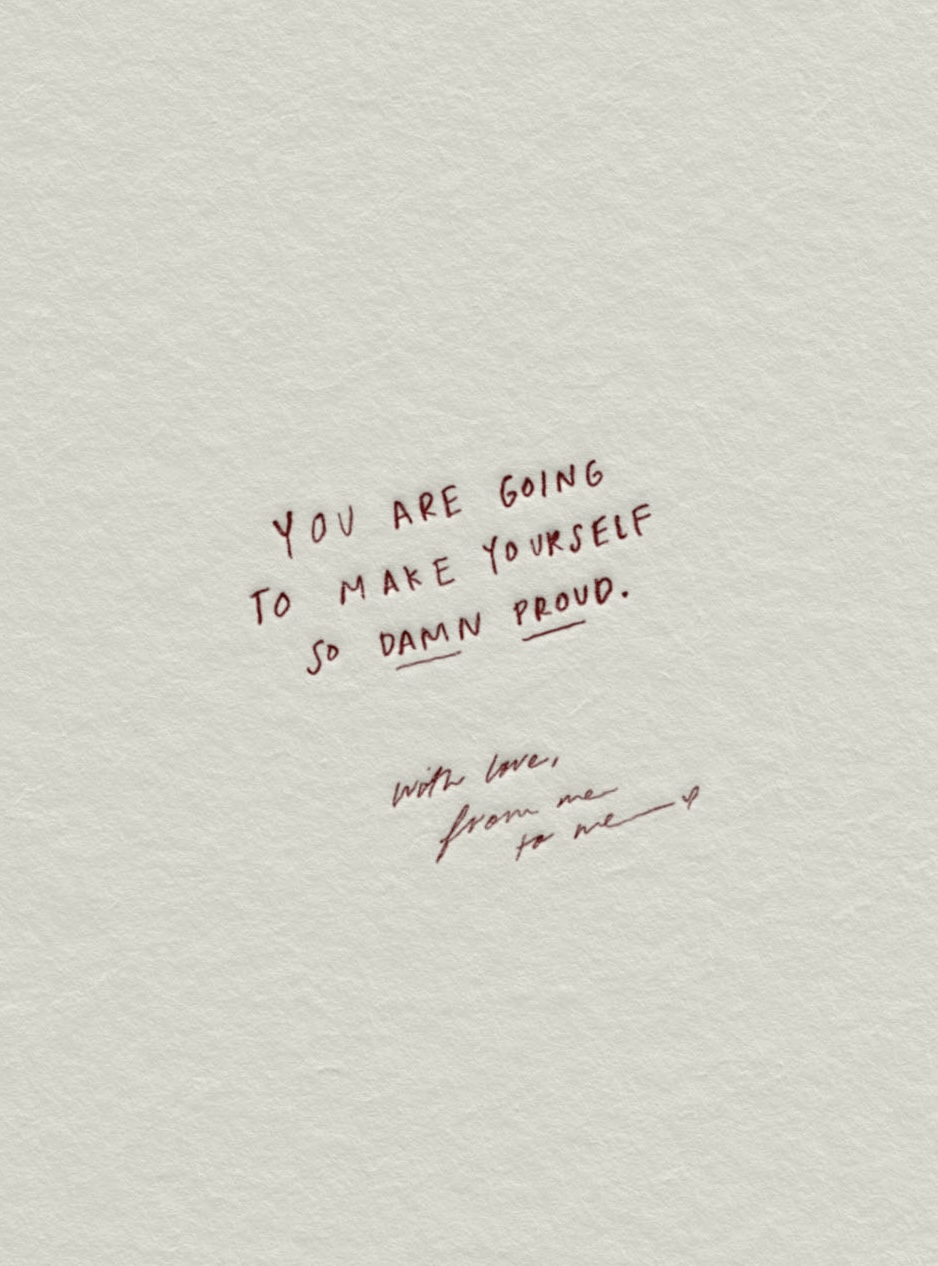 YOU ARE GOING
TO MAKE YOURSELF
SO DAMN PROUD.
with love,
from me
to me